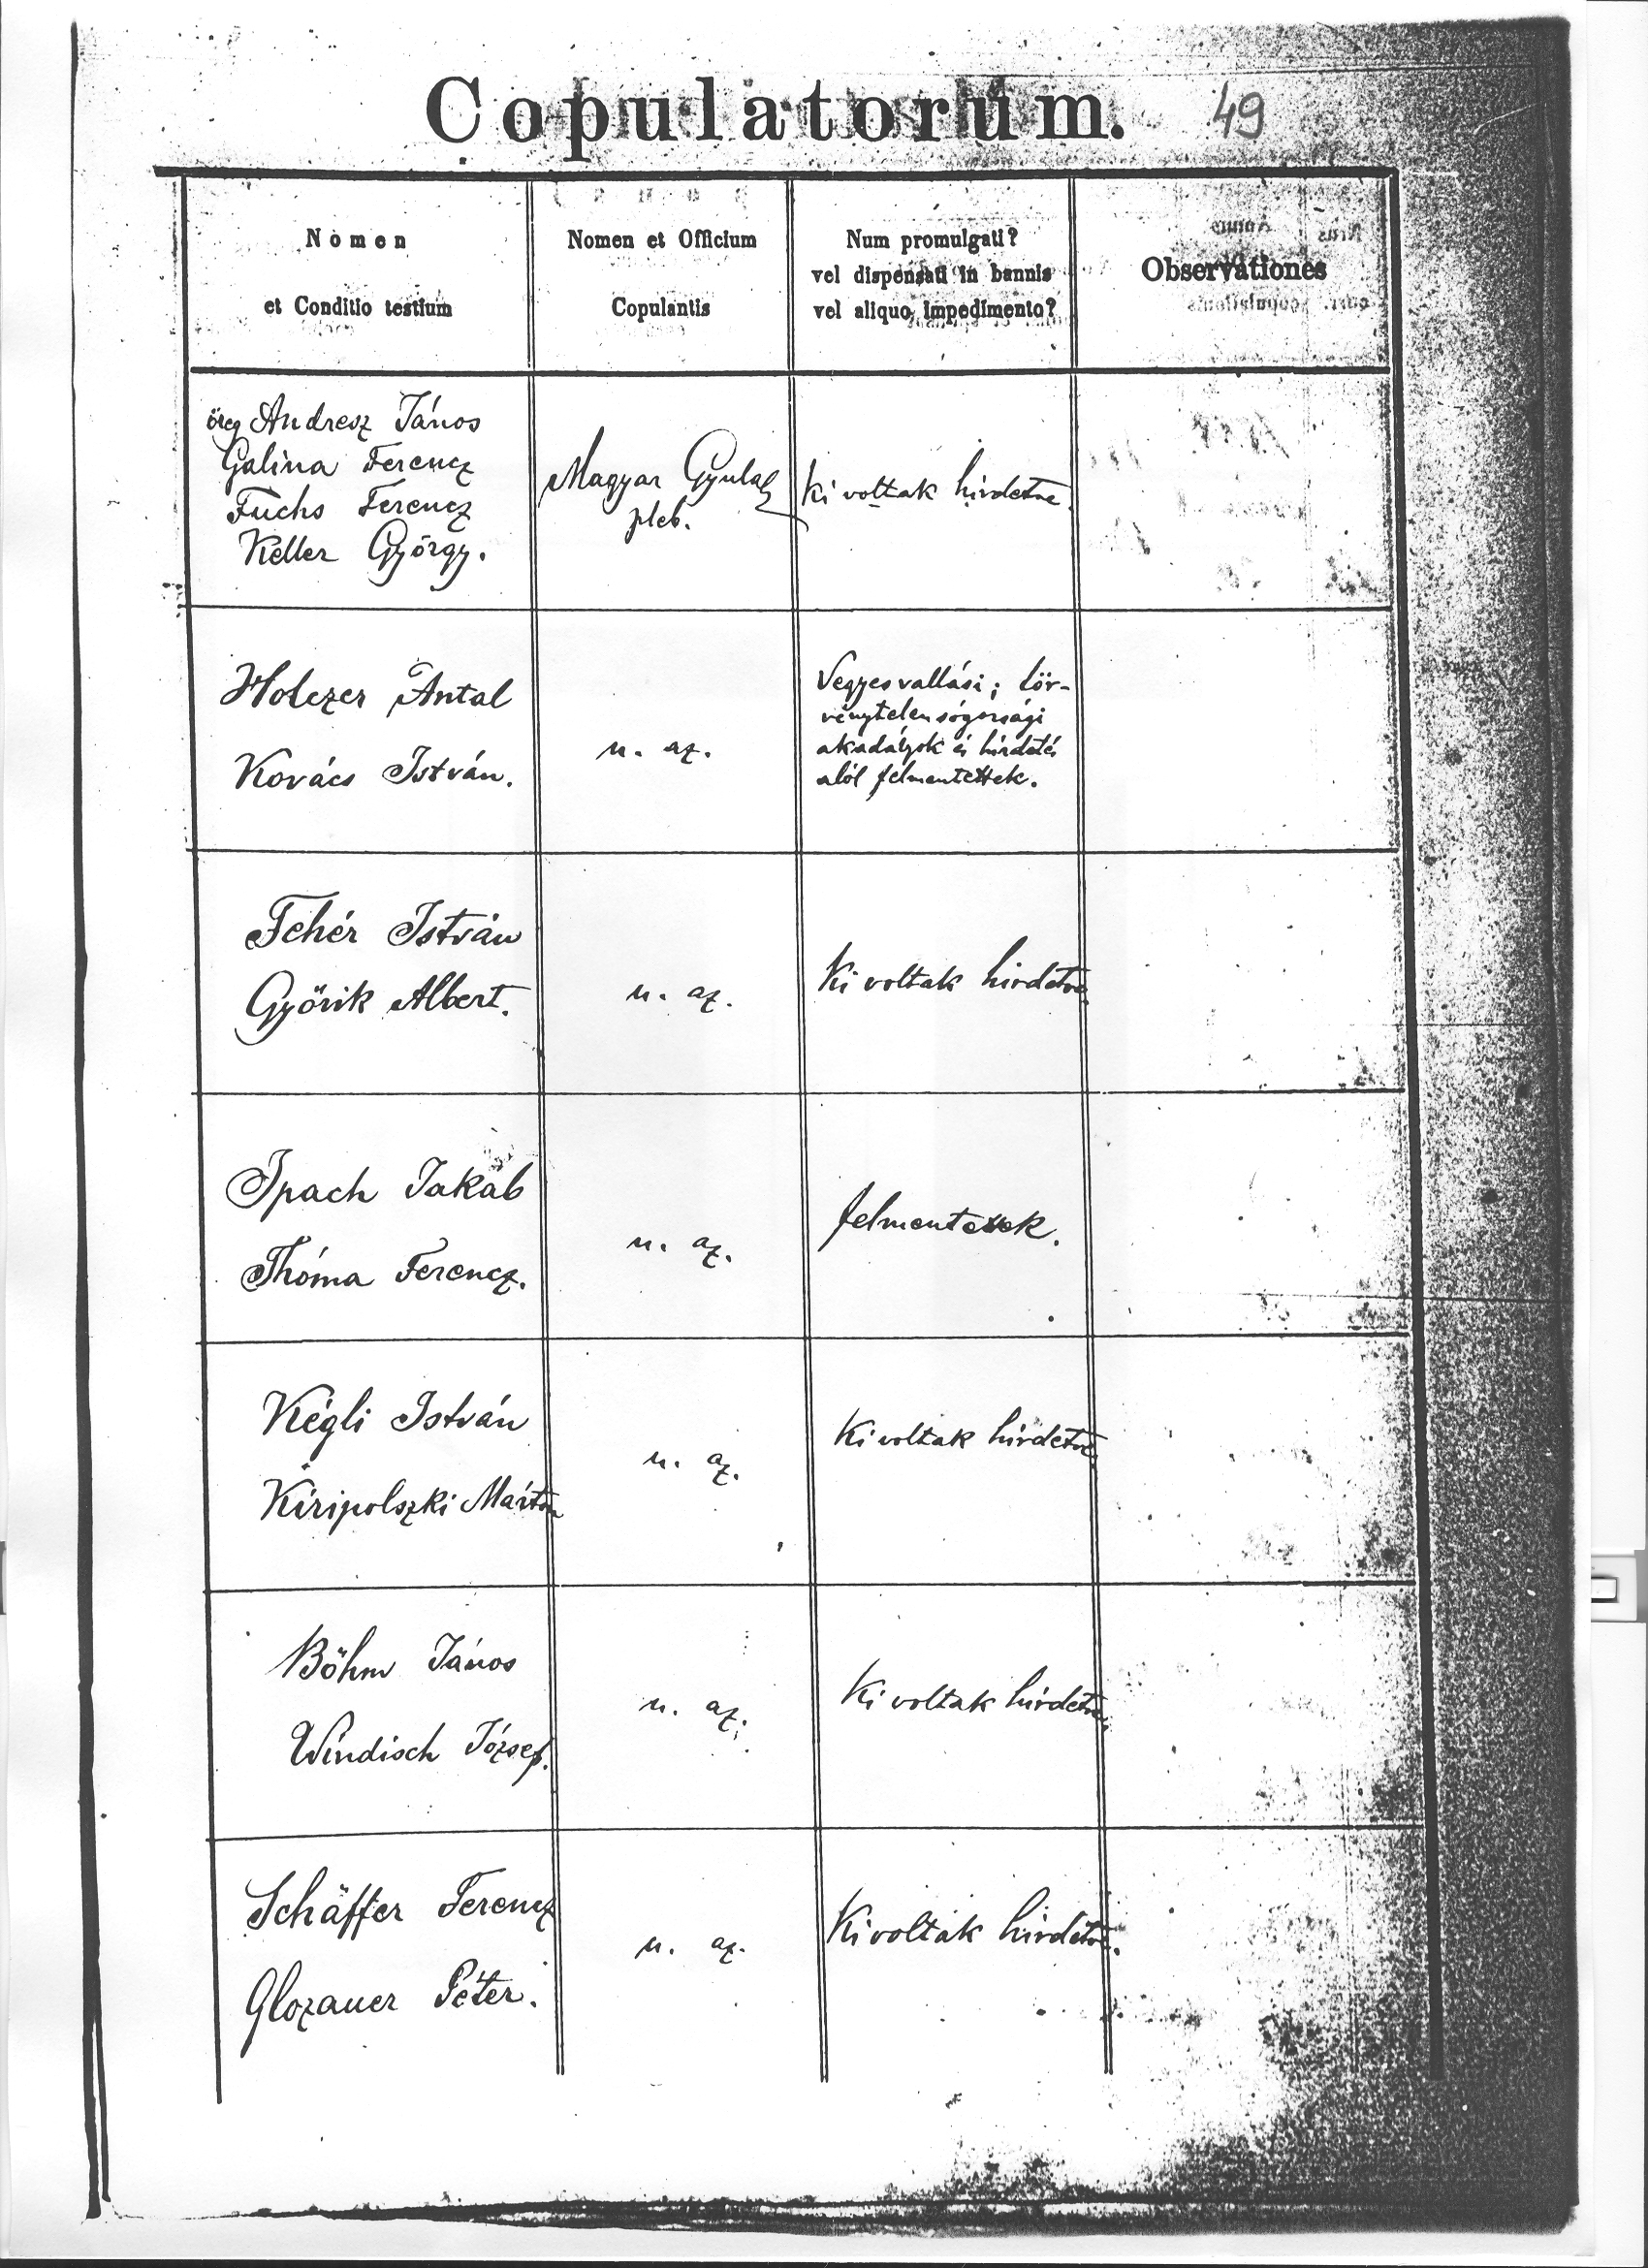 Copulatorum. 49
Nomen
et Conditio testium
Nomen et Officium
Copulantis
Num promulgati?
vel dispensati in bannis
vel aliquo impedimento?
Observationes
öreg Andresz János
Galina Ferencz
Fuchs Ferencz
Keller György.
Magyar Gyula
pleb.
Ki voltak hirdetve.
Holczer Antal
Kovács István.
u. az.
Vegyesvallási; tör-
vénytelen sógorsági
akadályok és hirdetés
alól felmentettek.
Fehér István
Győrik Albert.
u. az.
Ki voltak hirdetve.
Ipach Jakab
Thóma Ferencz.
u. az.
felmentettek.
Kégli István
Kiripolszki Márton
u. az.
Ki voltak hirdetve.
Böhm János
Windisch József.
u. az.
Ki voltak hirdetve.
Schäffer Ferencz
Glozauer Péter.
u. az.
Ki voltak hirdetve.